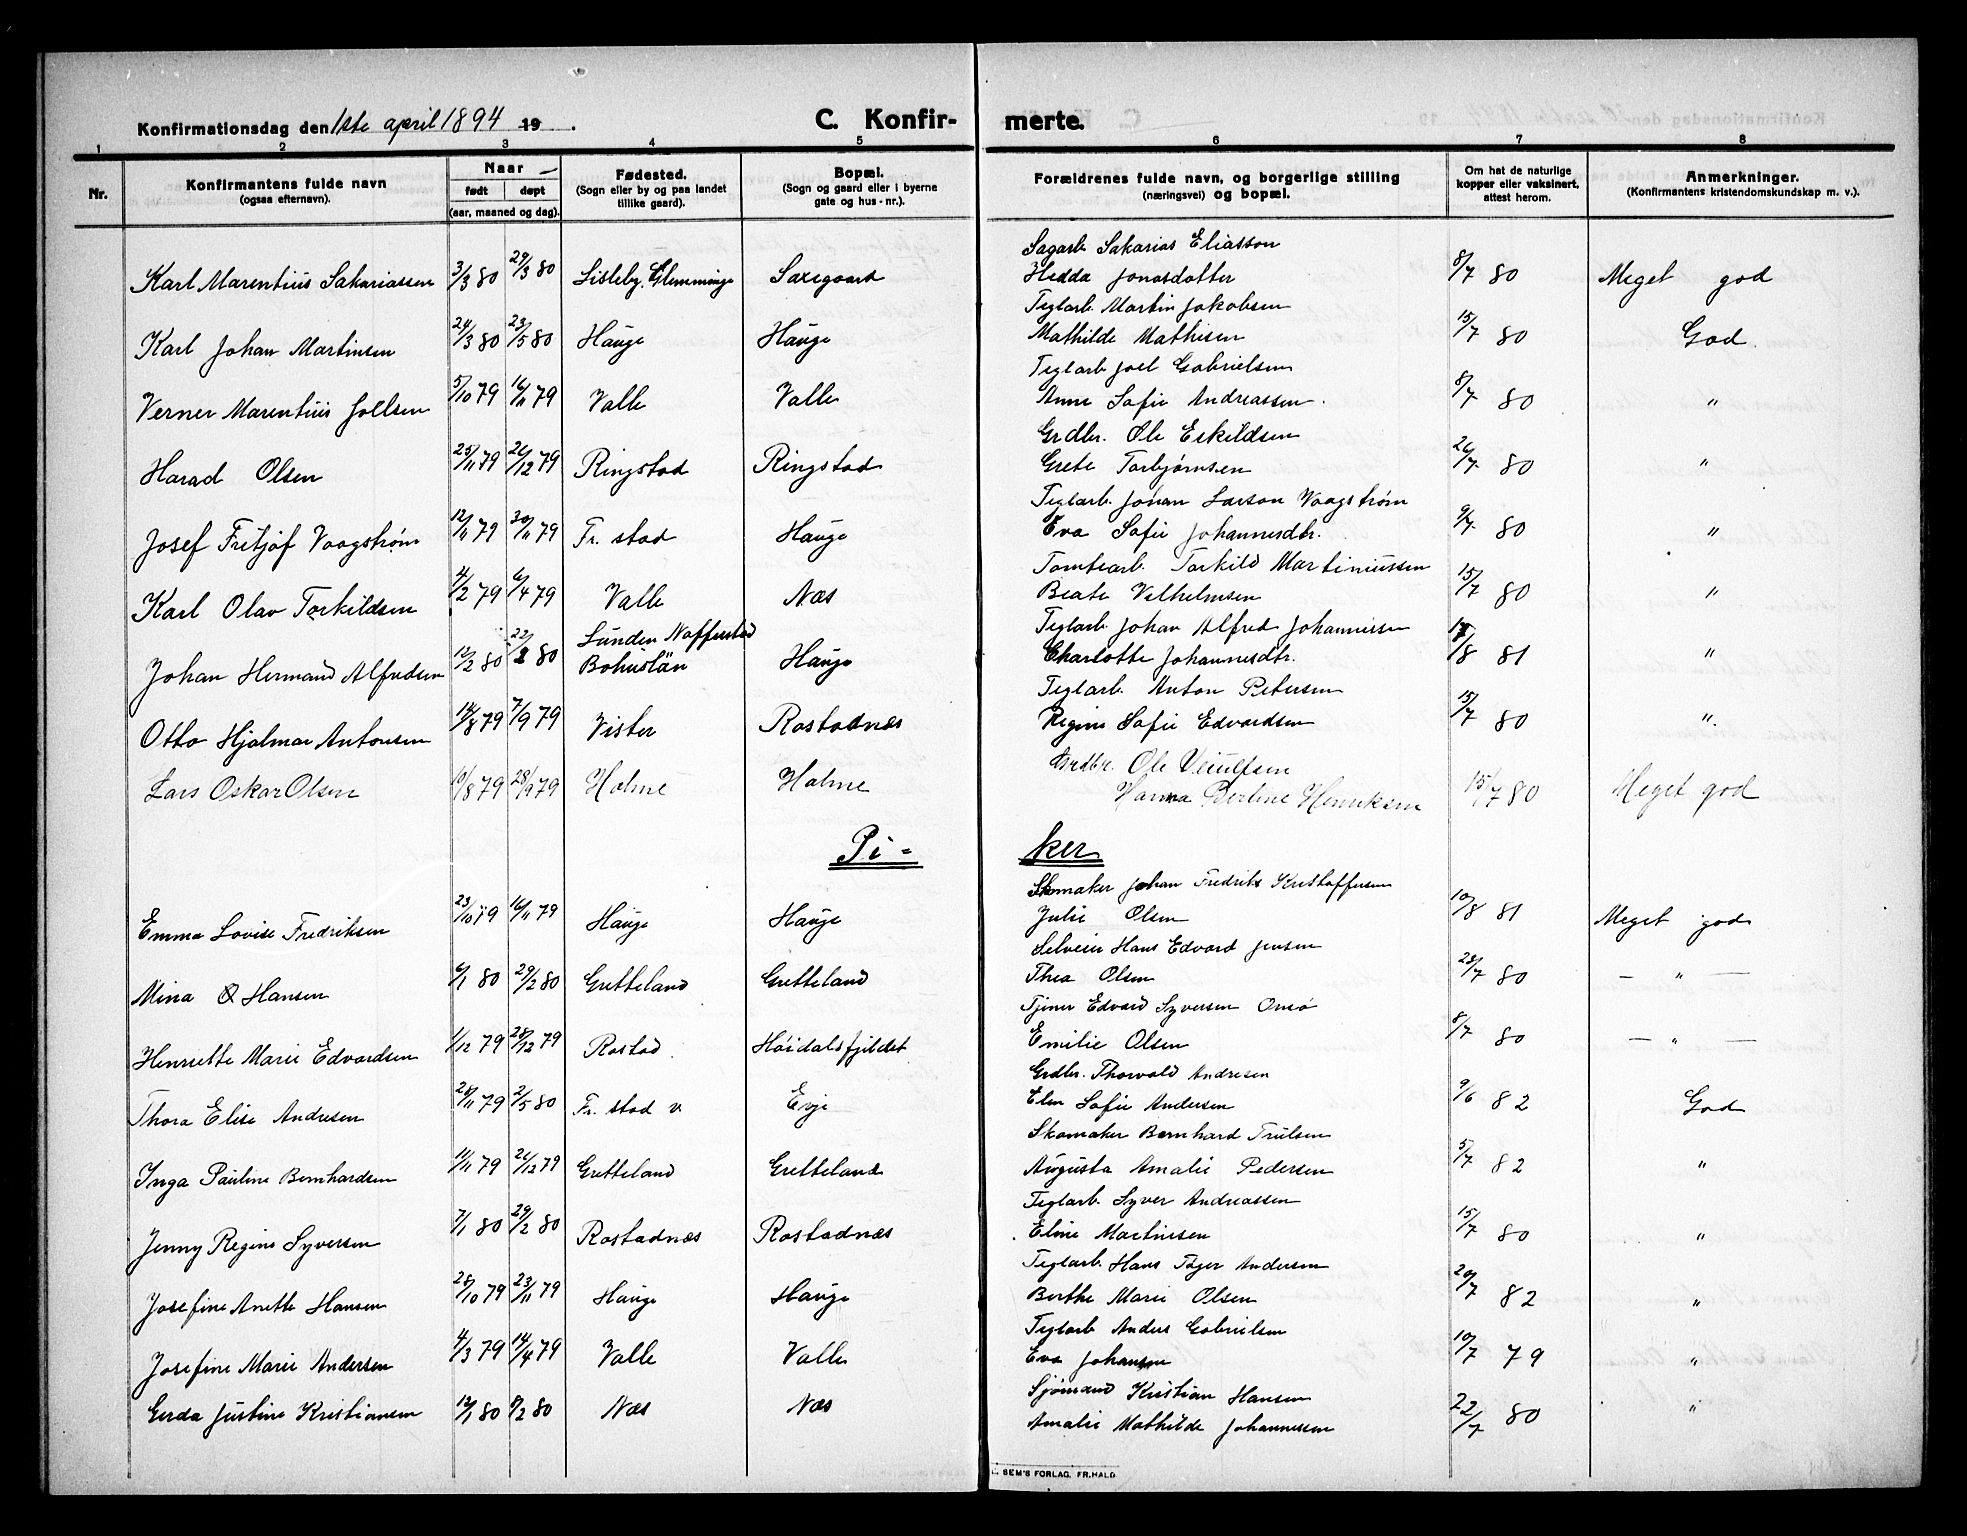 Konfirmationsdag den 1ste april 1894 19 .
C. Konfir-
merte.
1 2 3 4 5 6 7 8
Nr.
Konfirmantens fulde navn
(ogsaa efternavn).
Naar
født døpt
(aar, maaned og dag).
Fødested.
(Sogn eller by og paa landet
tillike gaard).
Bopæl.
(Sogn og gaard eller i byerne
gate og hus-nr.).
Forældrenes fulde navn, og borgerlige stilling
(næringsvei) og bopæl.
Om hat de naturlige
kopper eller vaksinert,
attest herom.
Anmerkninger.
(Konfirmantens kristendomskundskap m. v.).
Sagarb. Sakarias Eliasson
Karl Marentius Sakariassen 3/3 80 29/3 80 Lisleby, Glemminge Saxegaard Hedda Jonasdotter 8/7 80 Meget god
Teglarb. Martin Jakobsen
Karl Johan Martinsen 24/3 80 23/5 80 Hauge Hauge Mathilde Mathisen 15/7 80 God.
Teglarb Joel Gabrielsen
Verner Marentius Joelsen 5/10 79 16/11 79 Valle Valle Anne Sofie Andreassen. 8/7 80 "
Grdbr. Ole Eskildsen
Harad Olsen 25/11 79 26/12 79 Ringstad Ringstad Grete Torbjørnsen 26/7. 80 "
Teglarb. Johan Larson Vaagstrøm
Josef Fritjof Vaagstrøm 12/11 79 30/11 79 Fr. stad Hauge Eva Sofie Johannesdtr. 9/7. 80 "
Tomtearb. Torkild Martiniussen
Karl Olav Torkildsen 4/2 79 6/4 79 Valle Næs Beate Vilhelmsen 15/7 80 "
Lunden Nafferstad
Teglarb. Johan Alfred Johannessen
Johan Hermand Alfredsen 12/2 80 22/2 80 Bohuslän Hauge Charlotte Johannesdtr. 17/8 81 "
Teglarb. Anton Petersen
Otto Hjalmar Antonsen 14/8 79 7/9 79 Vister Rostadnæs Regine Sofie Edvardsen 15/7 80 ".
Grdbr. Ole
Lars Oskar Olsen 10/8 79 28/9 79 Holme Holme Berline Henriksen 15/7 80 Meget god
Pi-
ker
Skomaker Johan Fredrik Kristoffersen
Emma Lovise Fredriksen 23/10 79 16/11 79 Hauge Hauge Julie Olsen 10/8 81 Meget god
Selveier Hans Edvard Jensen
Mina O Hansen 6/1 80 29/2 80 Gretteland Gretteland Thea Olsen 28/7 80 — " —
Tjener Edvard Syversen Onsø
Henriette Marie Edvardsen 1/12 79 28/12 79 Rostad. Höidalsfjeldet Emilie Olsen 8/7 80 — " —
Grdbr. Thorvald Andresen
Thora Elise Andresen 28/11 79 2/5 80 Fr. stad v Evje Elen Sofie Andersen 9/6 82 God
Skomaker Bernhard Trulsen
Inga Pauline Bernhardsen 11/11 79 26/12 79 Gretteland Gretteland Augusta Amalie Pedersen 5/7 82 "
Teglarb. Syver Andreassen
Jenny Regine Syversen 7/1 80 29/2 80 Rostadnæs Rostadnæs Eline Martinsen 15/7 80 "
Teglarb. Hans Tyger Andersen
Josefine Anette Hansen 28/10 79 23/11 79 Hauge Hauge Berthe Marie Olsen 20/7 82 "
Teglarb Anders Gabrielsen
Josefine Marie Andersen 4/3 79 14/4 79 Valle Valle Eva Johansen 10/7 79 "
Sjømand Kristian Hansen
Gerda Justine Kristiansen 12/1 80 8/2 80 Næs Næs Amalie Mathilde Johannessen 22/7 80 "
SEM'S FORLAG. FR.HALD